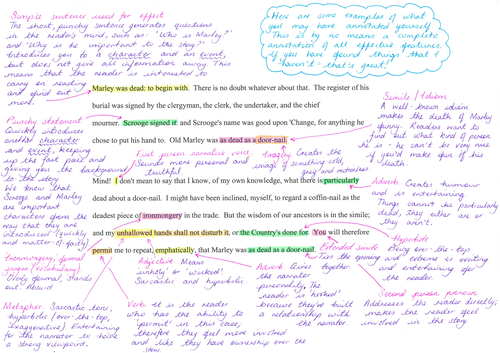 Simple sentence used for effect
The short, punchy sentence generates questions
in the reader's mind, such as - 'Who is Marley?'
and 'Why is he important to the story?' It
introduces you to a character and an event,
but does not give all information away. This
means that the reader is interested to
carry on reading
and find out
more.
Hex are some examples of what
you may have annotated yourself.
This is by no means a complete
annotation of all effective features.
If you have found things that I
haven't - that's great!
Marley was dead: to begin with. There is no doubt whatever about that. The register of his
burial was signed by the clergyman, the clerk, the undertaker, and the chief
mourner. Scrooge signed it: and Scrooge's name was good upon 'Change, for anything he
chose to put his hand to. Old Marley was as dead as a door-nail.
Mind! I don't mean to say that I know, of my own knowledge, what there is particularly
dead about a door-nail. I might have been inclined, myself, to regard a coffin-nail as the
deadest piece of ironmongery in the trade. But the wisdom of our ancestors is in the simile;
and my unhallowed hands shall not disturb it, or the Country's done for. You will therefore
permit me to repeat, emphatically, that Marley was as dead as a door-nail.
Punchy statement
Quickly introduces
another character
and event, keeping
up the fast pace and
giving you the background
to the story.
We know that
Scrooge and Marley
are important
characters from the
way that they are
introduced (quickly
and matter-of-factly)
First person narrative voice
Sounds more personal and
truthful
Imagery Creates the
image of something cold,
grey and motionless
Simile / Idiom
A well-known idiom
makes the death of Marley
quirky. Readers want to
find out what kind of person
he is - he can't be very nice
if you'd make fun of his
death.
Adverb Creates humour
and is entertaining
Things cannot be particularly
dead, they either are or
they aren't.
Ironmongery, formal
jargon (vocabulary)
Overly formal, stands
out. Absurd.
Metaphor Sarcastic tone,
hyperbolic (over-the-top,
exaggerative) Entertaining
for the narrator to have
a strong viewpoint.
Adjective Means
'unholy' or 'wicked'.
Sarcastic and hyperbolic.
Verb It is the reader
who has the ability to
'permit' in this case,
therefore they feel more involved
and like they have ownership over the
story.
Adverb Gives
the narrator
personality. The
reader is hooked
because they've built
a relationship with
the narrator
Extended simile
Ties the opening
Hyperbole
Being over-the-top
and extreme is exciting
and entertaining for
the reader.
Second person pronoun
Addresses the reader directly;
makes the reader feel
involved in the story.